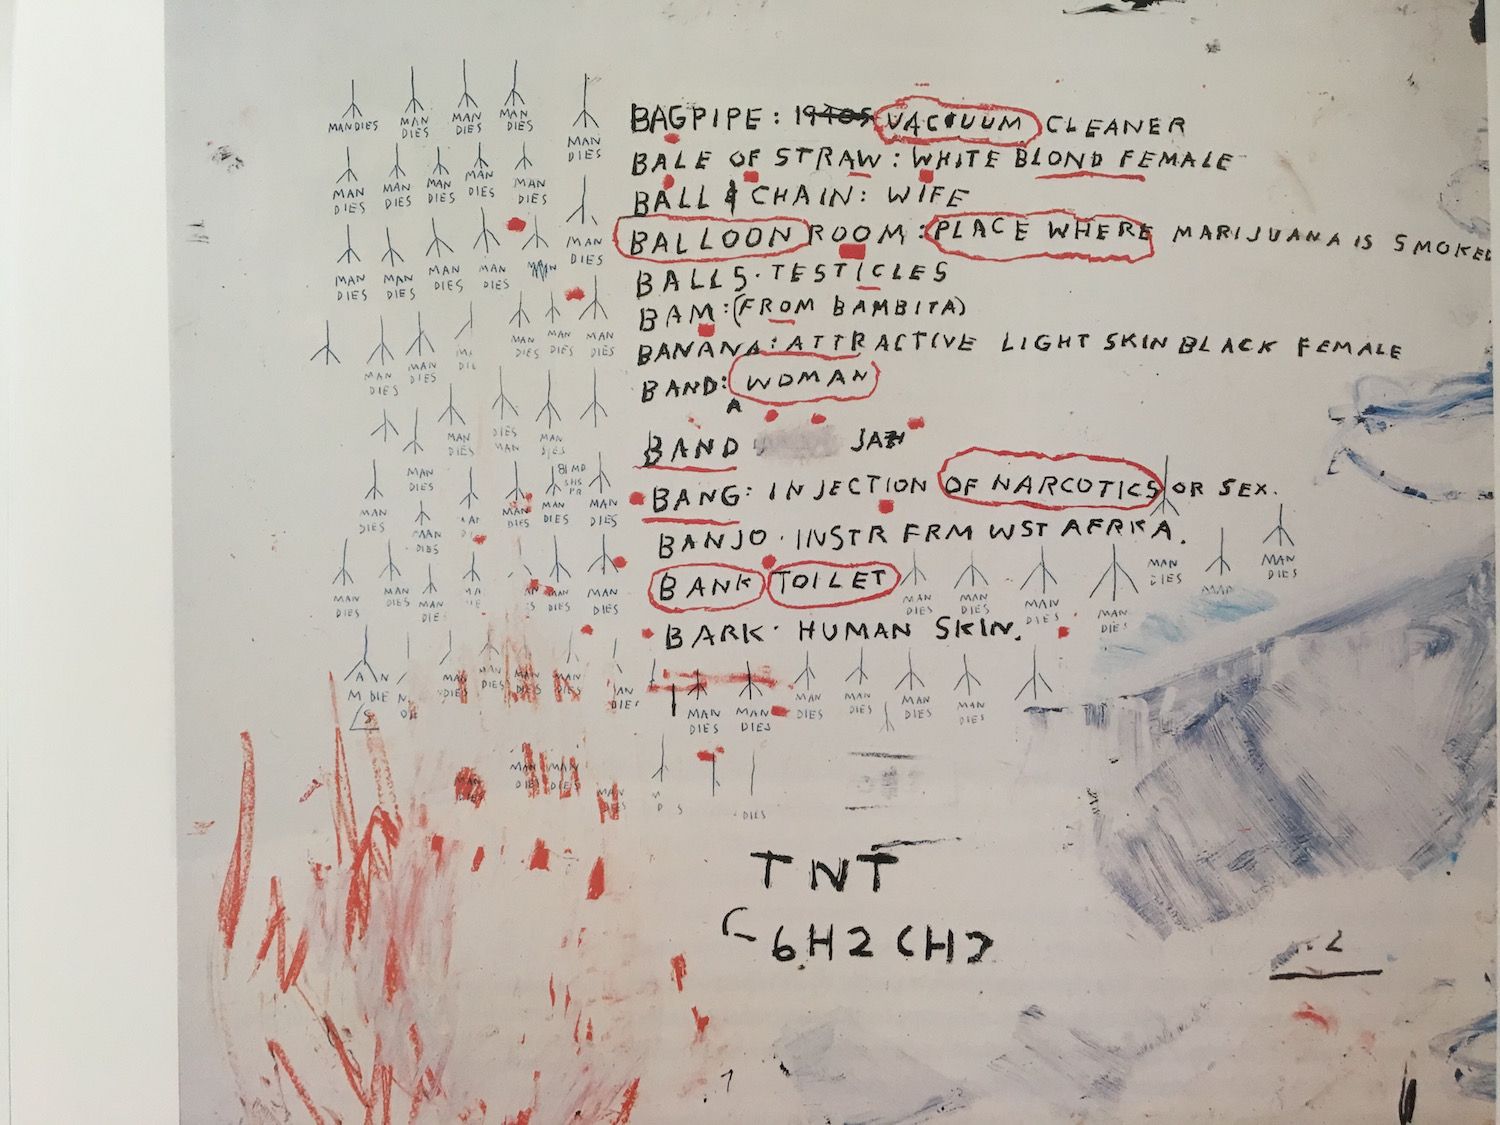 MAN DIES
MAN DIES
MAN DIES
MAN DIES
MAN DIES
BAGPIPE: 1940S VACUUM CLEANER
BALE OF STRAW: WHITE BLOND FEMALE
MAN DIES
MAN DIES
MAN DIES
MAN DIES
MAN DIES
BALL & CHAIN: WIFE
BALLOON ROOM: PLACE WHERE MARIJUANA IS SMOKED
MAN DIES
MAN DIES
MAN DIES
MAN DIES
MAN DIES
MAN
BALLS. TESTICLES
BAM: (FROM BAMBITA)
BANANA: ATTRACTIVE LIGHT SKIN BLACK FEMALE
MAN DIES
MAN DIES
MAN DIES
MAN DIES
MAN DIES
BAND: WOMAN
A
MAN DIES
DIES MAN
MAN DIES
BAND JAZZ
BANG: INJECTION OF NARCOTICS OR SEX.
MAN DIES
MAN DIES
MAN DIES
MAN DIES
MAN DIES
MAN DIES
BANJO. INSTR FRM WST AFRKA.
BANK TOILET
MAN DIES
MAN DIES
MAN DIES
MAN DIES
MAN DIES
MAN DIES
MAN DIES
MAN DIES
MAN DIES
MAN
MAN DIES
BARK. HUMAN SKIN.
MAN DIES
MAN DIES
MAN DIES
MAN DIES
MAN DIES
MAN DIES
MAN DIES
MAN DIES
MAN DIES
MAN DIES
MAN DIES
MAN DIES
MAN DIES
MAN DIES
DIES
TNT
C6H2CH3